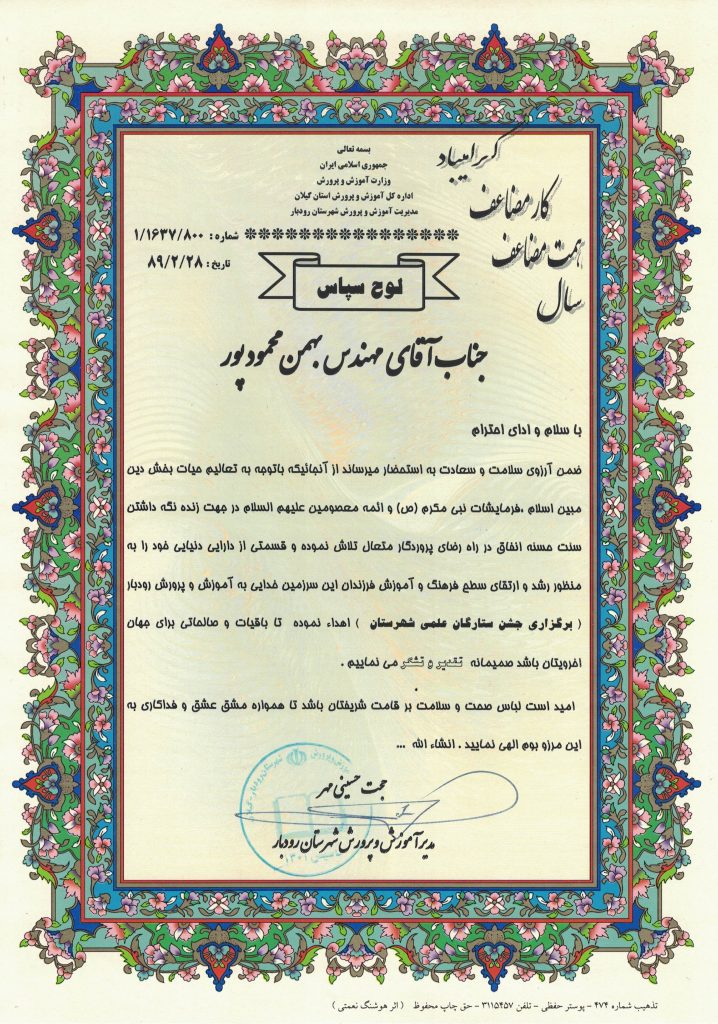 بسمه تعالی
جمهوری اسلامی ایران
وزارت آموزش و پرورش
اداره کل آموزش و پرورش استان گیلان
مدیریت آموزش و پرورش شهرستان رودبار
سال
همت مضاعف
کار مضاعف
گرامیباد
شماره : ۱/۱۶۳۷/۸۰۰
تاریخ : ۸۹/۲/۲۸
لوح سپاس
جناب آقای مهندس بهمن محمود پور
با سلام و ادای احترام
ضمن آرزوی سلامت و سعادت به استحضار میرساند از آنجائیکه باتوجه به تعالیم حیات بخش دین
مبین اسلام ،فرمایشات نبی مکرم (ص) و ائمه معصومین علیهم السلام در جهت زنده نگه داشتن
سنت حسنه انفاق در راه رضای پروردگار متعال تلاش نموده و قسمتی از دارایی دنیایی خود را به
منظور رشد و ارتقای سطح فرهنگ و آموزش فرزندان این سرزمین خدایی به آموزش و پرورش رودبار
( برگزاری جشن ستارگان علمی شهرستان ) اهداء نموده تا باقیات و صالحاتی برای جهان
اخرویتان باشد صمیمانه تقدیر و تشکر می نماییم .
امید است لباس صحت و سلامت بر قامت شریفتان باشد تا همواره مشق عشق و فداکاری به
این مرزو بوم الهی نمایید . انشاء الله ...
حجت حسینی مهر
مدیر آموزش و پرورش شهرستان رودبار
تذهیب شماره ۴۷۴ - پوستر حفظی - تلفن ۳۱۱۵۴۵۷ - حق چاپ محفوظ ( اثر هوشنگ نعمتی )